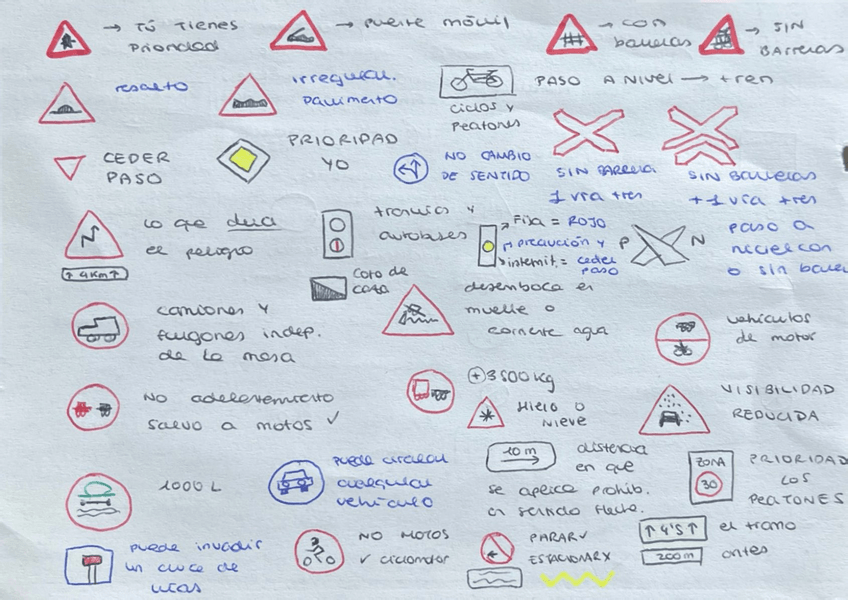 → TÚ TIENES
PRIORIDAD
→ PUENTE MÓVIL
→ CON
BARRERAS
→ SIN
BARRERAS
resalto
irregular.
pavimento
CICLOS Y
PEATONES
PASO A NIVEL → tren
CEDER
PASO
PRIORIDAD
YO
NO CAMBIO
DE SENTIDO
SIN BARRERA
1 vía tren
SIN BARRERAS
+ 1 vía tren
lo que dura
el peligro
↑ 4Km ↑
tranvías y
autobuses
Fija = ROJO
precaución y
intermit. = ceder
paso
P
N
paso a
nivel con
o sin barrer
coto de
caza
camiones y
furgones indep.
de la masa
desemboca en
muelle o
corriente agua
vehículos
de motor
NO adelantamiento
salvo a motos ✓
+ 3500 kg
HIELO o
NIEVE
VISIBILIDAD
REDUCIDA
1000 L
puede circular
cualquier
vehículo
10 m
→
distancia
en que
se aplica prohib.
en sentido flecha.
ZONA
30
PRIORIDAD
LOS
PEATONES
puede invadir
un cruce de
vías
NO MOTOS
✓ ciclomotor
PARAR ✓
ESTACIONAR X
↑ 4'5 ↑
200 m
el tramo
antes